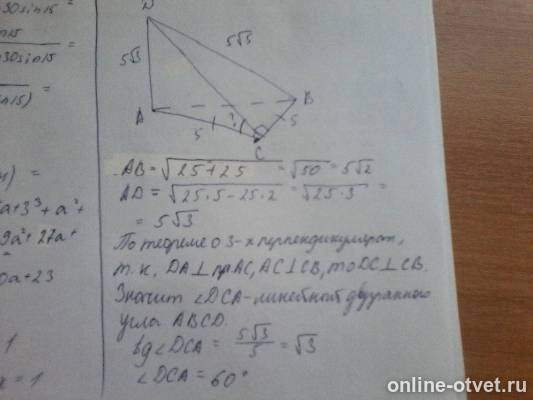 30 sin 15 =
15
30 sin 15
sin 15) =
) =
a + 3³ + a² +
9a² + 27a +
0a + 23
1
x = 1
D
5√3
5√3
A
B
5
?
5
C
AB = √25+25 = √50 = 5√2
AD = √25·5-25·2 = √25·3 =
= 5√3
По теореме о 3-х перпендикулярах,
т.к. DA⊥прAC, AC⊥CB, то DC⊥CB.
Значит ∠DCA - линейный двугранного
угла ABCD.
tg∠DCA = 5√3/5 = √3
∠DCA = 60°
online-otvet.ru